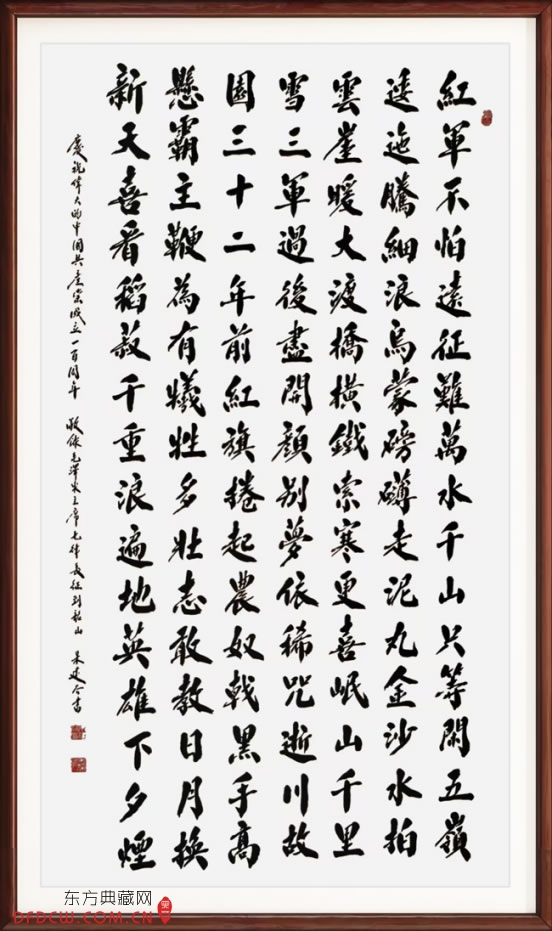 紅軍不怕遠征難萬水千山只等閑五嶺
逶迤騰細浪烏蒙磅礴走泥丸金沙水拍
雲崖暖大渡橋橫鐵索寒更喜岷山千里
雪三軍過後盡開顏別夢依稀咒逝川故
園三十二年前紅旗捲起農奴戟黑手高
懸霸主鞭為有犧牲多壯志敢教日月換
新天喜看稻菽千重浪遍地英雄下夕煙
慶祝偉大的中国共產黨成立一百周年 敬錄毛澤東主席七律長征到韶山 朱建今書
东方典藏网
DFDCW.COM.CN